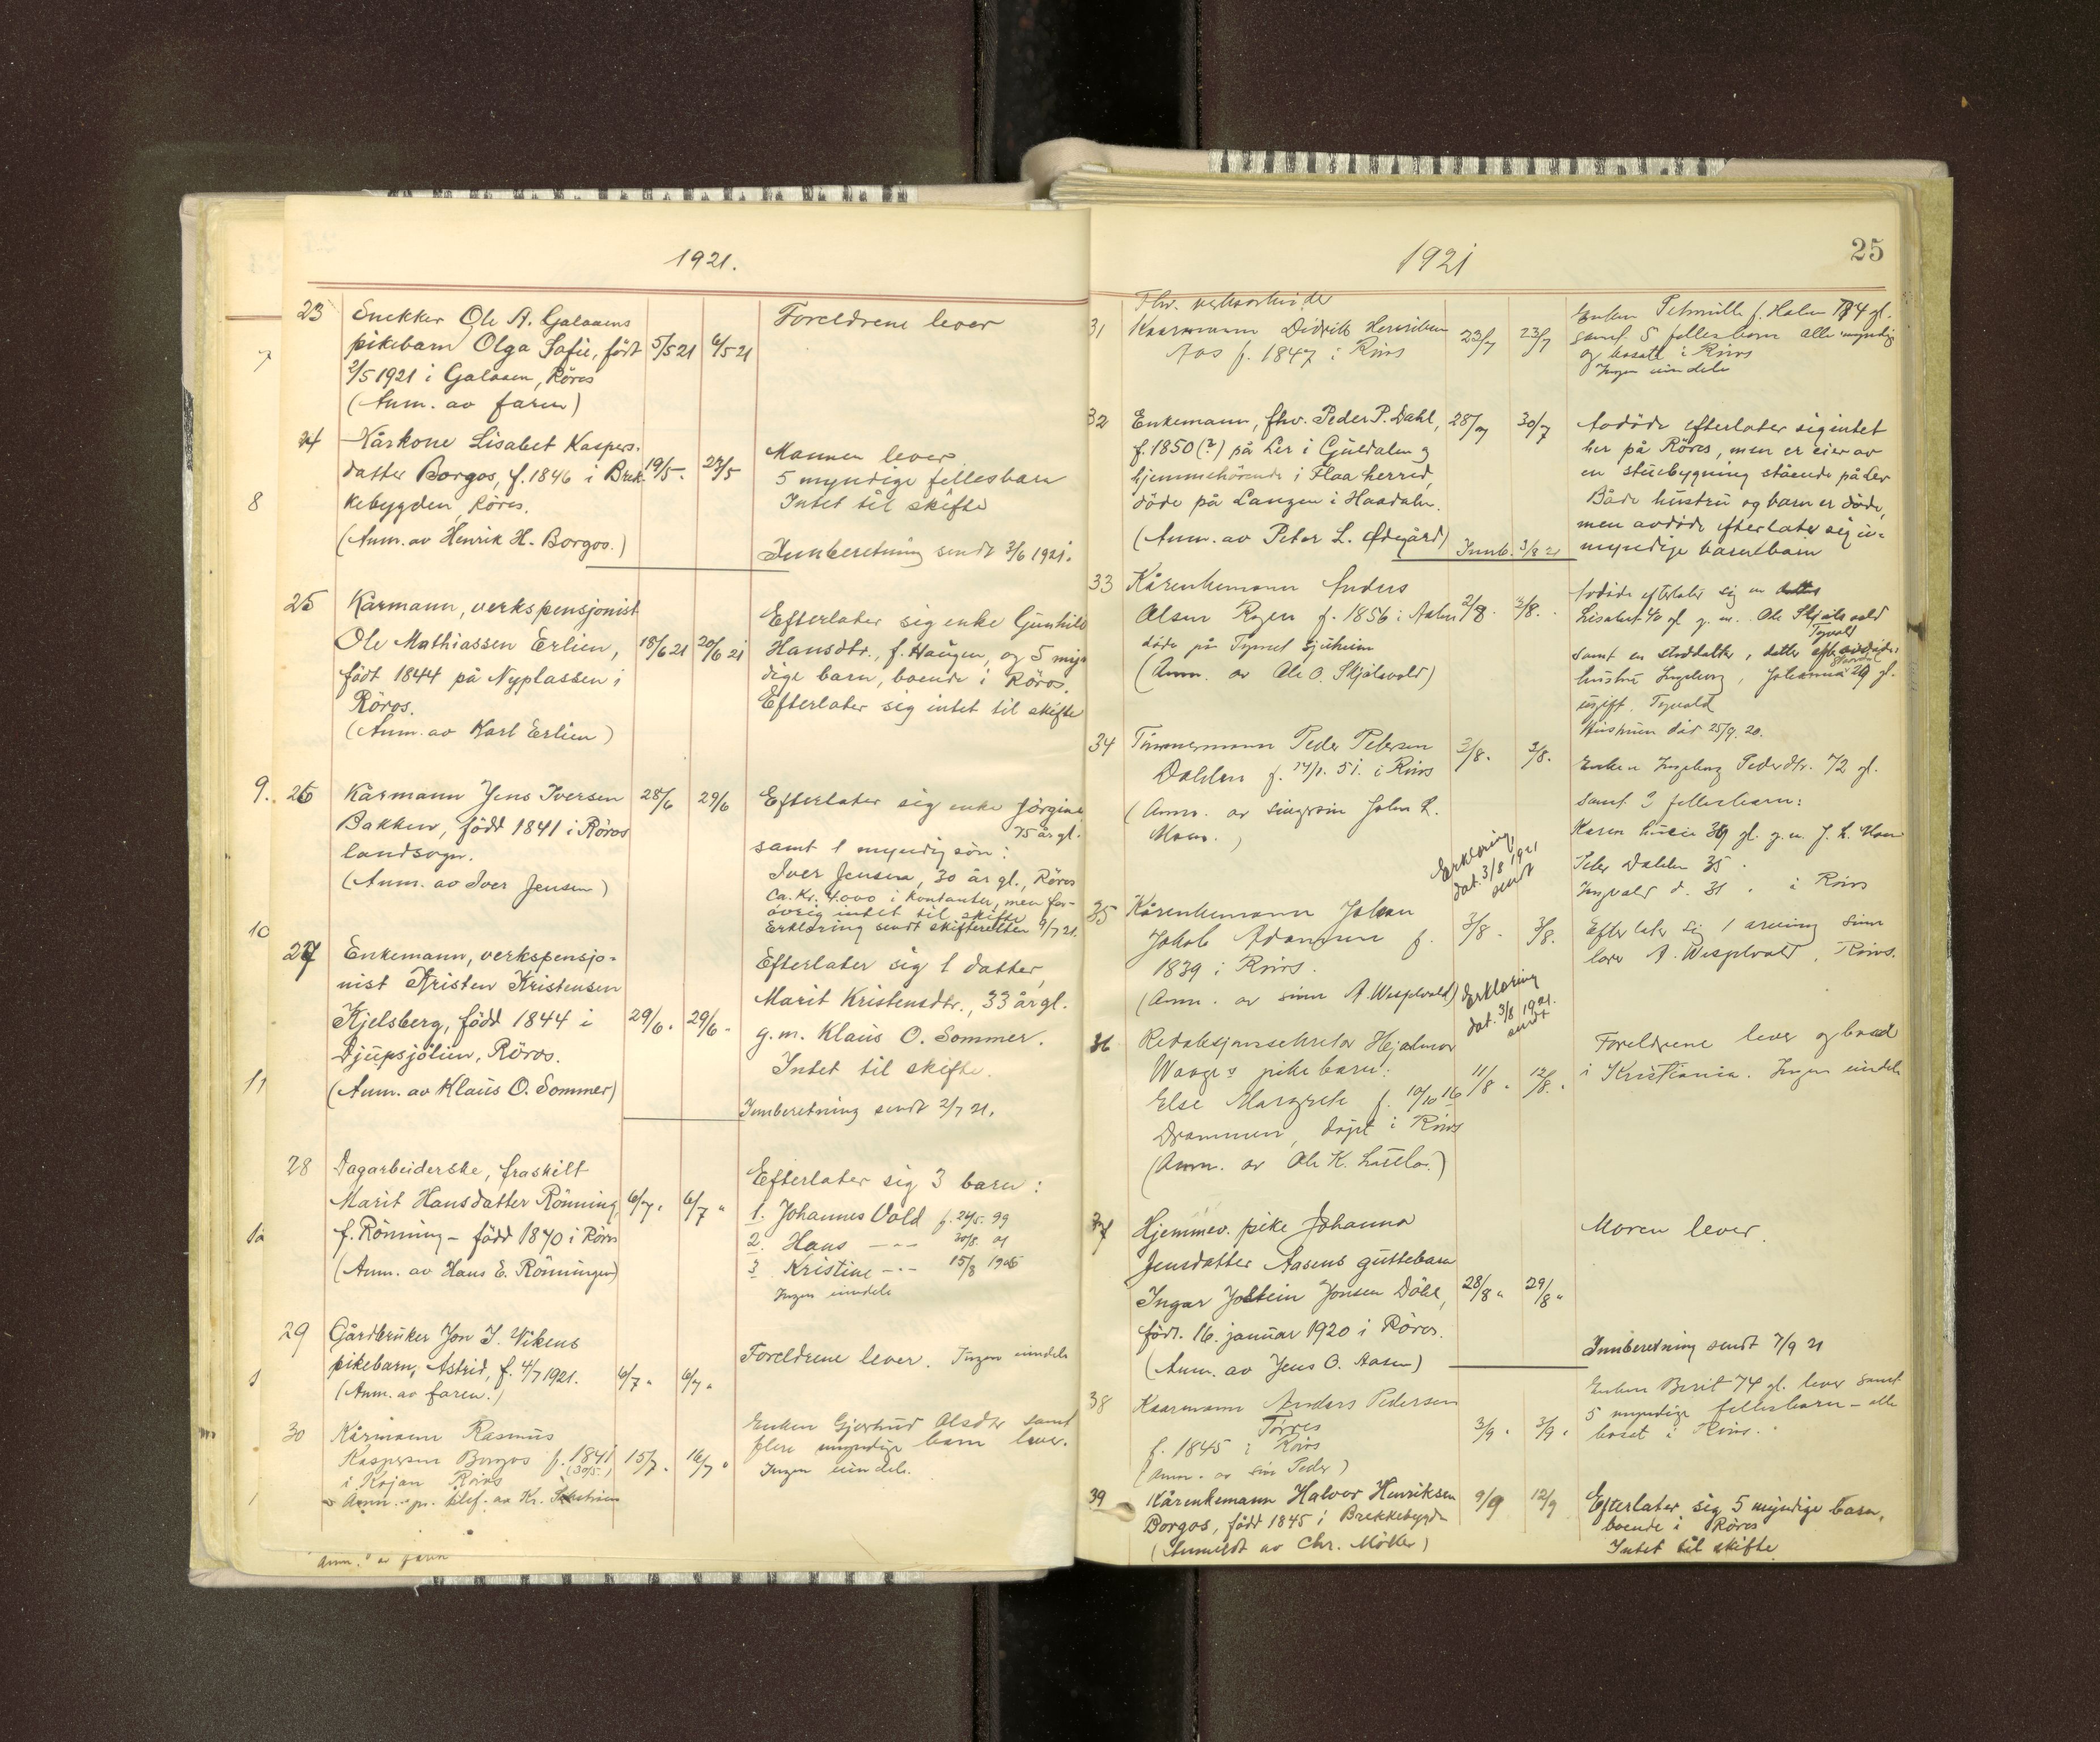 1921.
23
Snekker Ole A. Galaaens
pikebarn Olga Sofie, født
2/5 1921 i Galaaen, Röros
(Anm. av faren)
5/5 21
6/5 21
Foreldrene lever
24
Kårkone Lisabet Kaspers-
datter Borgos, f. 1846 i Brek-
kebygden, Röros.
(Anm. av Henrik H. Borgos.)
19/5 -
27/5
Mannen lever
5 myndige fellesbarn
Intet til skifte
Innberetning sendt 3/6 1921.
25
Kårmann, verkspensjonist
Ole Mathiassen Erlien,
født 1844 på Nyplassen i
Röros.
(Anm. av Karl Erlien)
18/6 21
20/6 21
Efterlater sig enke Gunhild
Hansdtr., f. Haugen, og 5 myn
dige barn, boende i Röros.
Efterlater sig intet til skifte
26
Kårmann Jens Iversen
Bakken, född 1841 i Röros
landsogn.
(Anm. av Iver Jensen)
28/6
29/6
Efterlater sig enke Jörgine
75 år gl.
samt 1 myndig sön:
Iver Jensen, 30 år gl., Röros
Ca. Kr. 4.000 i kontanter, men for-
övrig intet til skifte
Erklæring sendt skifteretten 2/7 21.
27
Enkemann, verkspensjo-
nist Kristen Kristensen
Kjelsberg, född 1844 i
Djupsjölien, Röros.
(Anm. av Klaus O. Sommer)
29/6 .
29/6 -
Efterlater sig 1 datter,
Marit Kristensdtr., 33 år gl.
g.m. Klaus O. Sommer.
Intet til skifte.
Innberetning sendt 2/7 21.
28
Dagarbeiderske, fraskilt
Marit Hansdatter Rönning,
f. Rönning - född 1870 i Röros
(Anm. av Hans E. Rönningen)
6/7 .
6/7 "
Efterlater sig 3 barn:
1. Johannes Vold f. 24/5. 99
2. Hans - - - 30/8. 01
3 Kristine - - - 15/8 1906
Ingen eiendele
29
Gårdbruker Jon J. Vikens
pikebarn, Astrid, f. 4/7 1921.
(Anm. av faren.)
6/7 "
6/7 "
Foreldrene lever. Ingen eiendele
30
Kårmann Rasmus
Kaspersen Borgos f. 1841
(30/5.)
i Kojan Röros
Anm. pr. tlef. av Kr.
15/7 .
16/7 "
Enken Gjertrud Olsdtr samt
flere myndige barn lever.
Ingen eiendele.
Anm. av faren
1921
25
31
Fhv. verksarbeider
Kaarmann Didrik Henriksen
Aas f. 1847 i Röros
23/7
23/7
Enken Petrnille f. Holm 74 gl.
samt 5 fellesbarn alle myndig
og bosatt i Röros
Ingen eiendele
32
Enkemann, fhv. Peder P. Dahl,
f. 1850 (?) på Ler i Guldalen og
hjemmehörende i Flaa herred,
döde på Langen i Haadalen.
(Anm. av Peter L. Ødegård)
28/7
30/7
Avdöde efterlater sig intet
her på Röros, men er eier av
en stuebygning stående på Ler
Både hustru og barn er döde,
men avdöde efterlater sig u-
myndige barnebarn
Innb. 3/8 21
33
Kårenkemann Anders
Olsen Rogen f. 1856 i Aalen
döde på Tynset sjukeim
(Anm. av Ole O. Skjölsvold)
2/8 .
2/8 .
Avdöde efterlater sig en
Lisabet 40 gl g. m. Ole Skjölsvold
Tyvold
samt en steddatter, datter efter avdödes
hustru Ingeborg, Johanna 29 gl.
ugift. Tyvold
Hustruen död 25/9. 20.
34
Tömmermann Peder Petersen
Dahlen f. 14/1. 51. i Röros
(Anm. av svigersön John L.
Moen.)
3/8 .
3/8 .
Enken Ingeborg Pedersdtr. 72 gl.
samt 3 fellesbarn:
Karen Lucie 39 gl. g.m. J. L. Moen
Peter Dahlen 35 .
Ingvald d. 31 . i Röros
Erklæring
dat. 3/8 1921
sendt
35
Kårenkemann Johan
Jakob Adamsen f.
1839 i Röros.
(Anm. av sönn A. Wespelvold)
3/8 -
3/8 .
Efterlater sig 1 arving sönn
A. Wespelvold, Röros.
Erklæring
dat. 3/8 1921.
sendt
36
Redaksjonssekretær Hjalmar
Waages pikebarn:
Else Margrete f. 10/10 16
Drammen, döpt i Röros
(Anm. av Ole K. )
11/8 "
12/8 .
Foreldrene lever og bod
i Kristiania. Ingen eiendele
37
Hjemmev. pike Johanna
Jensdatter Aasens guttebarn
Ingar Jostein Jonsen Döhl,
föd. 16. januar 1920 i Röros.
(Anm. av Jens O. Aasen)
28/8 "
29/8 "
Moren lever.
Innberetning sendt 7/9 21
38
Kaarmann Anders Pedersen
Torres
f. 1845 i Röros
(Anm. av sön Peder)
3/9 .
3/9 .
Enken Berit 74 gl. lever samt
5 myndige fellesbarn - alle
boset i Röros.
39
Kårenkemann Halvor Henriksen
Borgos, född 1845 i Brekkebygda
(Anmeldt av Chr. Möller)
9/9
12/9
Efterlater sig 5 myndige barn,
boende i Röros
Intet til skifte
7
8
9.
10
11
12
1